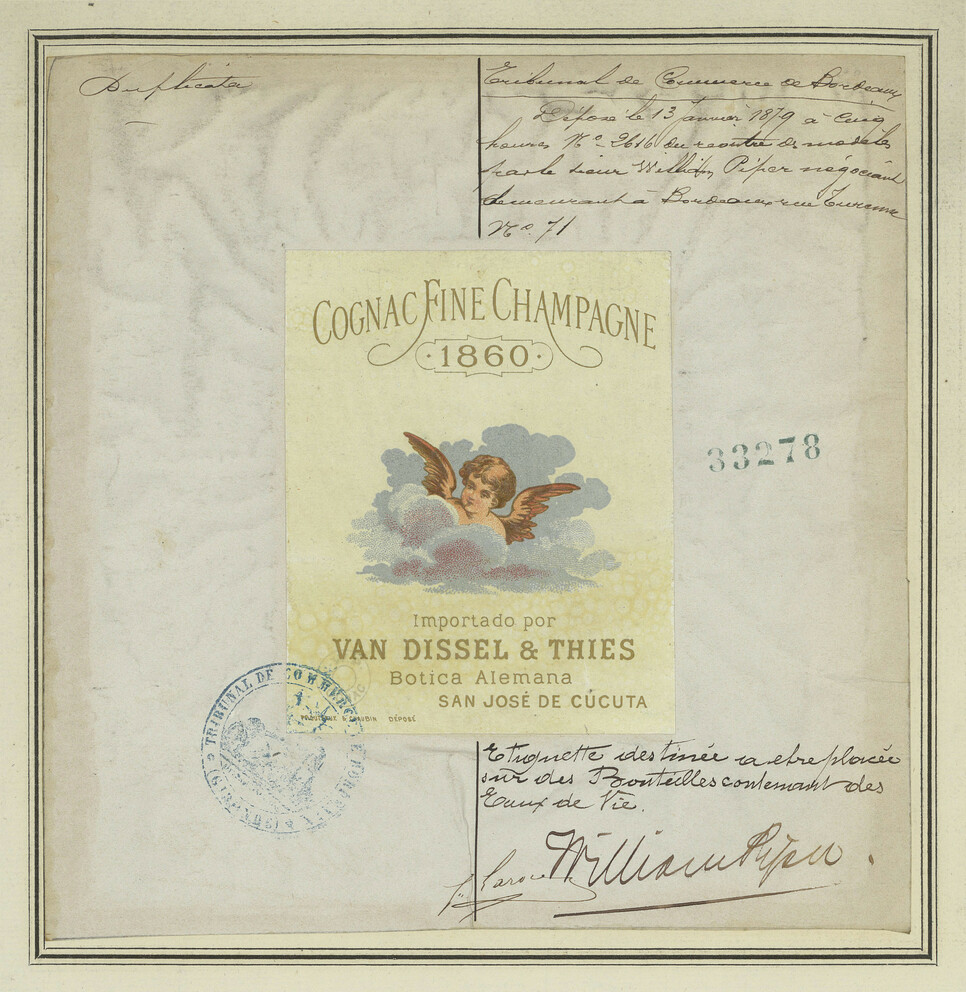 Duplicata
Tribunal de Commerce de Bordeaux
Déposé le 13 Janvier 1879 à Cinq
heures No 2616 du registre de modèles
par le sieur William Piper négociant
demeurant à Bordeaux rue Turenne
No. 71
COGNAC FINE CHAMPAGNE
1860
33278
Importado por
VAN DISSEL & THIES
Botica Alemana
SAN JOSÉ DE CÚCUTA
DÉPOSÉ
TRIBUNAL DE COMMERCE DE BORDEAUX
(GIRONDE)
Etiquette destinée a etre placée
sur des Bouteilles contenant des
Eaux de Vie.
William Piper